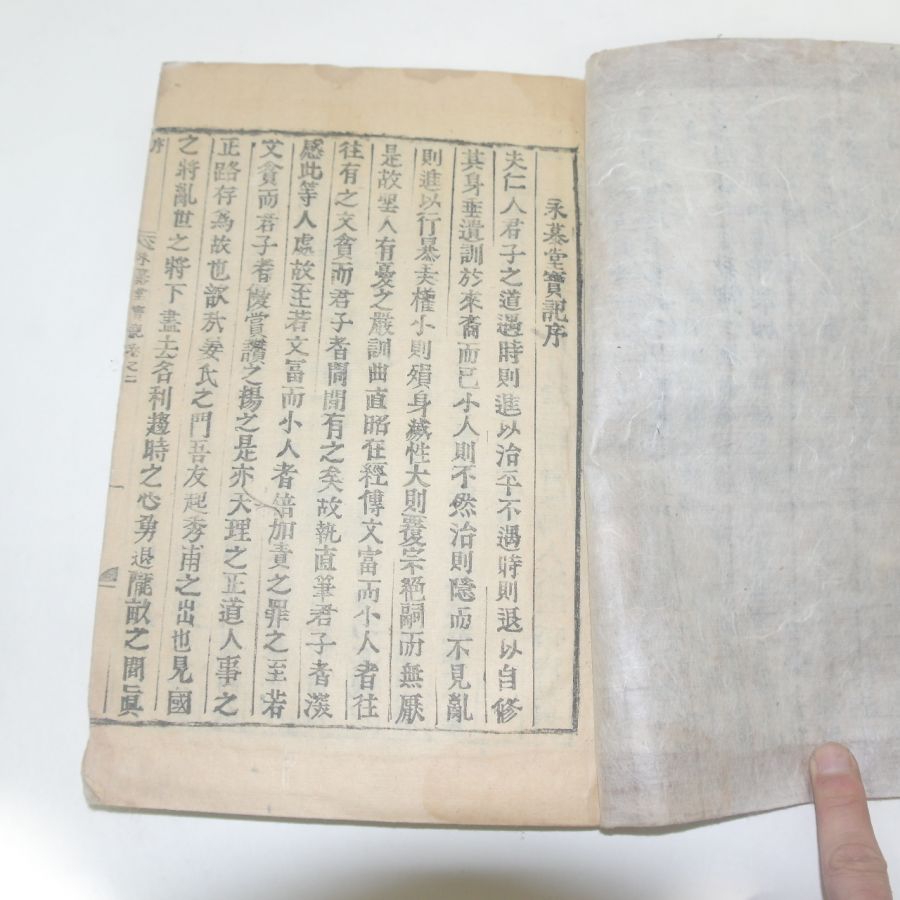 永慕堂實記序
夫仁人君子之道遇時則進以治平不遇時則退以自修
其身垂遺訓於來裔而已小人則不然治則隱而不見亂
則進以行暴美權小則殞身滅性大則覆宗絶嗣而無厭
是故聖人有憂之嚴訓曲直昭在經傳文富而小人者往
往有之文貧而君子者間聞有之矣故執直筆君子者深
感此等人處故至若文富而小人者倍加責之罪之至若
文貧而君子者慶賞讚之揚之是亦天理之正道人事之
正路存焉故也歆於姜氏之門吾友起秀甫之出也見國
之將亂世之將下盡去名利趨時之心勇退隴畝之間眞
永慕堂實記卷之一
序